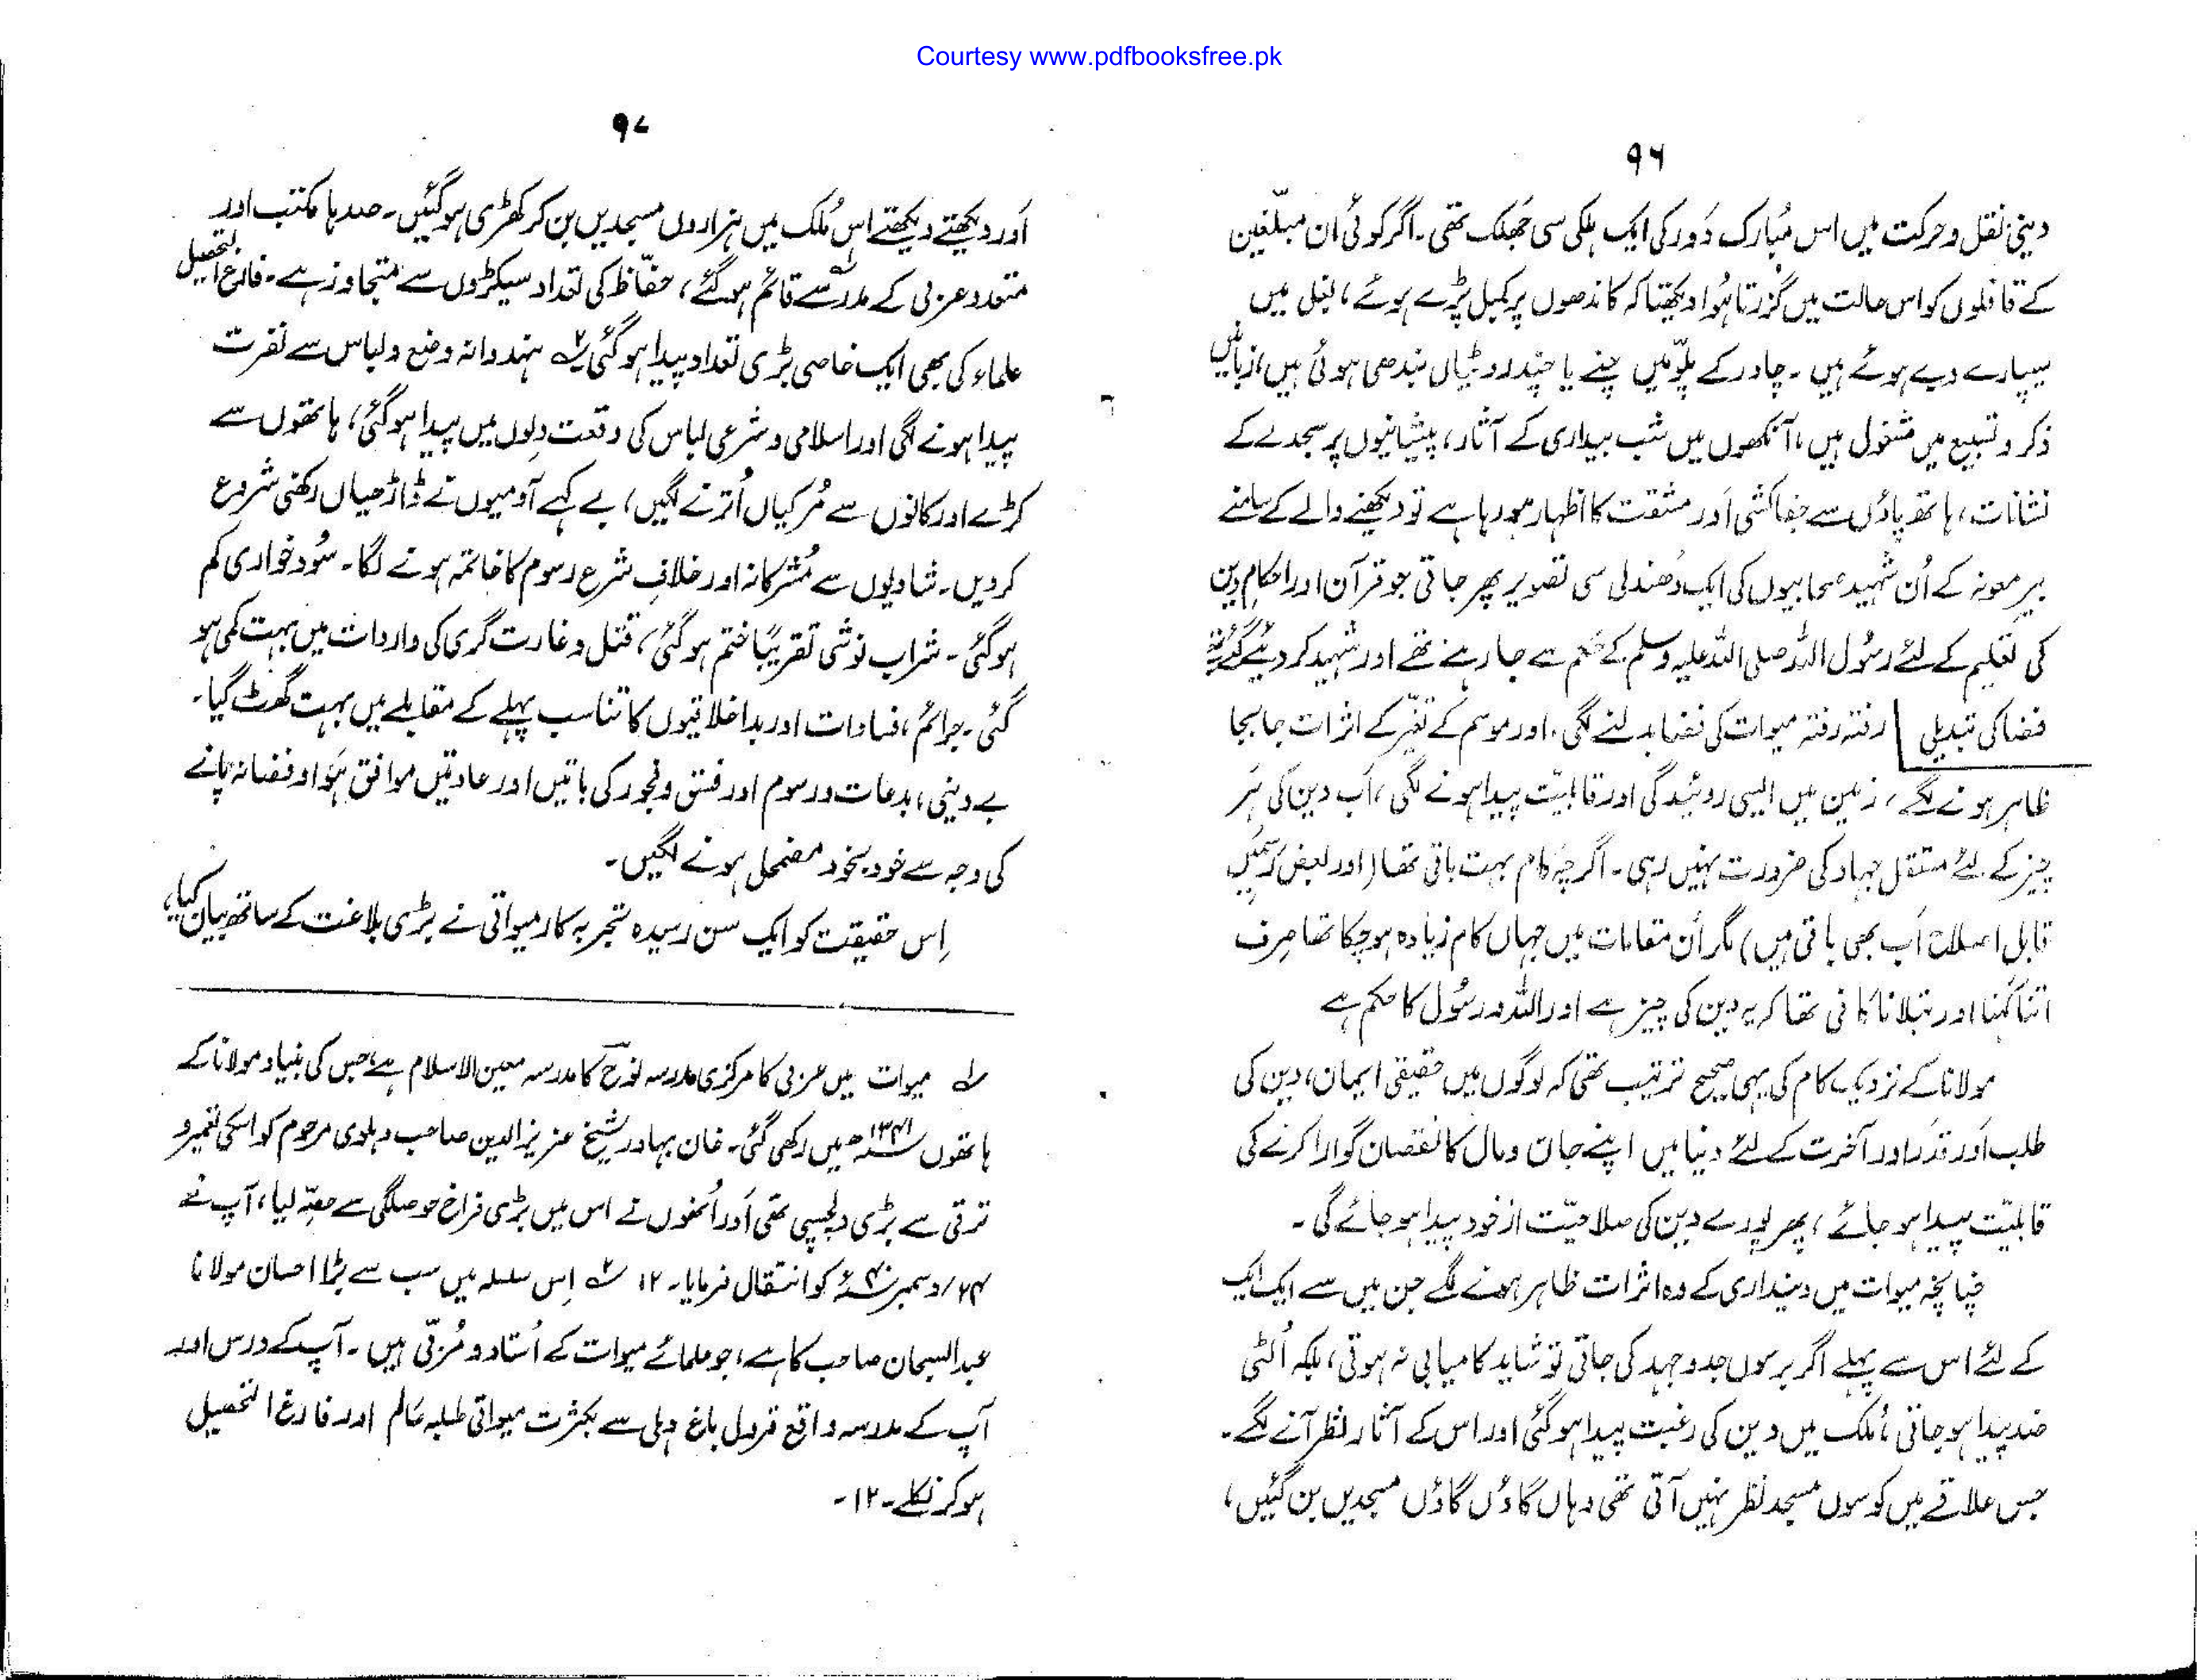 Courtesy www.pdfbooksfree.pk
۹۶
دینی نقل و حرکت میں اس مُبارک دَور کی ایک ہلکی سی جَھلک تھی۔ اگر کوئی ان مبلّغین
کے قافلوں کو اس حالت میں گزرتا ہُوا دیکھتا کہ کاندھوں پر کمبل پڑے ہوئے، بغل میں
سیپارے دبے ہوئے ہیں۔ چادر کے پلّو میں چنے یا چند روٹیاں بندھی ہوئی ہیں، زبانیں
ذکر و تسبیح میں مشغول ہیں، آنکھوں میں شب بیداری کے آثار، پیشانیوں پر سجدے کے
نشانات، ہاتھ پاؤں سے جفاکشی اَور مشقت کا اظہار ہورہا ہے تو دیکھنے والے کے سامنے
بیر معونہ کے اُن شہید صحابیوں کی ایک دُھندلی سی تصویر پھر جاتی جو قرآن اور احکامِ دین
کی تعلیم کے لئے رسُول اللہ صلی اللہ علیہ وسلم کے حکم سے جا رہے تھے اور شہید کر دیئے گئے
فضا کی تبدیلی رفتہ رفتہ میوات کی فضا بدلنے لگی، اور موسم کے تغیّر کے اثرات جابجا
ظاہر ہونے لگے، زمین میں ایسی روئیدگی اور قابلیّت پیدا ہونے لگی، اَب دین کی ہَر
چیز کے لئے مستقل جہاد کی ضرورت نہیں رہی۔ اگرچہ کام بہت باقی تھا (اور بعض رسمیں
قابل اصلاح اَب بھی باقی ہیں) مگر اُن مقامات میں جہاں کام زیادہ ہوچکا تھا صِرف
اتنا کہنا اور بتلانا کافی تھا کہ یہ دین کی چیز ہے اور اللہ و رسُول کا حکم ہے
مولانا کے نزدیک کام کی یہی صحیح ترتیب تھی کہ لوگوں میں حقیقی ایمان، دین کی
طلب اَور قدَر اور آخرت کے لئے دنیا میں اپنے جان و مال کا نقصان گوارا کرنے کی
قابلیّت پیدا ہوجائے، پھر پورے دین کی صلاحیّت از خود پیدا ہو جائے گی۔
چنانچہ میوات میں دینداری کے وہ اثرات ظاہر ہونے لگے جن میں سے ایک ایک
کے لئے اس سے پہلے اگر برسوں جدوجہد کی جاتی تو شاید کامیابی نہ ہوتی، بلکہ اُلٹی
ضد پیدا ہوجاتی، مُلک میں دین کی رغبت پیدا ہوگئی اور اس کے آثار نظر آنے لگے۔
جس علاقے میں کوسوں مسجد نظر نہیں آتی تھی وہاں گاؤں گاؤں مسجدیں بن گئیں،
۹۷
اَور دیکھتے دیکھتے اس مُلک میں ہزاروں مسجدیں بن کر کھڑی ہوگئیں۔ صدہا مکتب اور
متعدد عربی کے مدرسے قائم ہوگئے، حفّاظ کی تعداد سیکڑوں سے متجاوز ہے۔ فارغ التحصیل
علماء کی بھی ایک خاصی بڑی تعداد پیدا ہوگئی ۲ ہندوانہ وضع و لباس سے نفرت
پیدا ہونے لگی اور اسلامی و شرعی لباس کی وقعت دِلوں میں پیدا ہوگئی، ہاتھوں سے
کڑے اور کانوں سے مُرکیاں اُترنے لگیں، بے کہے آدمیوں نے ڈاڑھیاں رکھنی شروع
کردیں۔ شادیوں سے مُشرکانہ اور خلافِ شرع رسوم کا خاتمہ ہونے لگا۔ سُود خواری کم
ہوگئی۔ شراب نوشی تقریبًا ختم ہوگئی، قتل و غارت گری کی واردات میں بہت کمی ہو
گئی۔ جرائم، فسادات اور بداخلاقیوں کا تناسب پہلے کے مقابلے میں بہت گھٹ گیا۔
بے دینی، بدعات و رسوم اور فسق و فجور کی باتیں اور عادتیں موافق ہَوا و فضا نہ پانے
کی وجہ سے خود بخود مضمحل ہونے لگیں۔
اِس حقیقت کو ایک سن رسیدہ تجربہ کار میواتی نے بڑی بلاغت کے ساتھ بیان کیا،
۱ میوات میں عربی کا مرکزی مدرسہ نوح کا مدرسہ معین الاسلام ہے، جس کی بنیاد مولانا کے
ہاتھوں ۱۳۴۱ھ میں رکھی گئی۔ خان بہادر شیخ عزیز الدین صاحب دہلوی مرحوم کو اسکی تعمیر و
ترقی سے بڑی دلچسپی تھی اَور اُنھوں نے اس میں بڑی فراخ حوصلگی سے حصّہ لیا، آپ نے
۲۴/ دسمبر ۴۰ء کو انتقال فرمایا۔ ۱۲ ۲ اِس سلسلہ میں سب سے بڑا احسان مولانا
عبدالسبحان صاحب کا ہے، جو علمائے میوات کے اُستاد و مُربّی ہیں۔ آپ کے درس اور
آپ کے مدرسہ واقع قرول باغ دہلی سے بکثرت میواتی طلبہ عَالم اور فارغ التحصیل
ہوکر نکلے۔ ۱۲۔